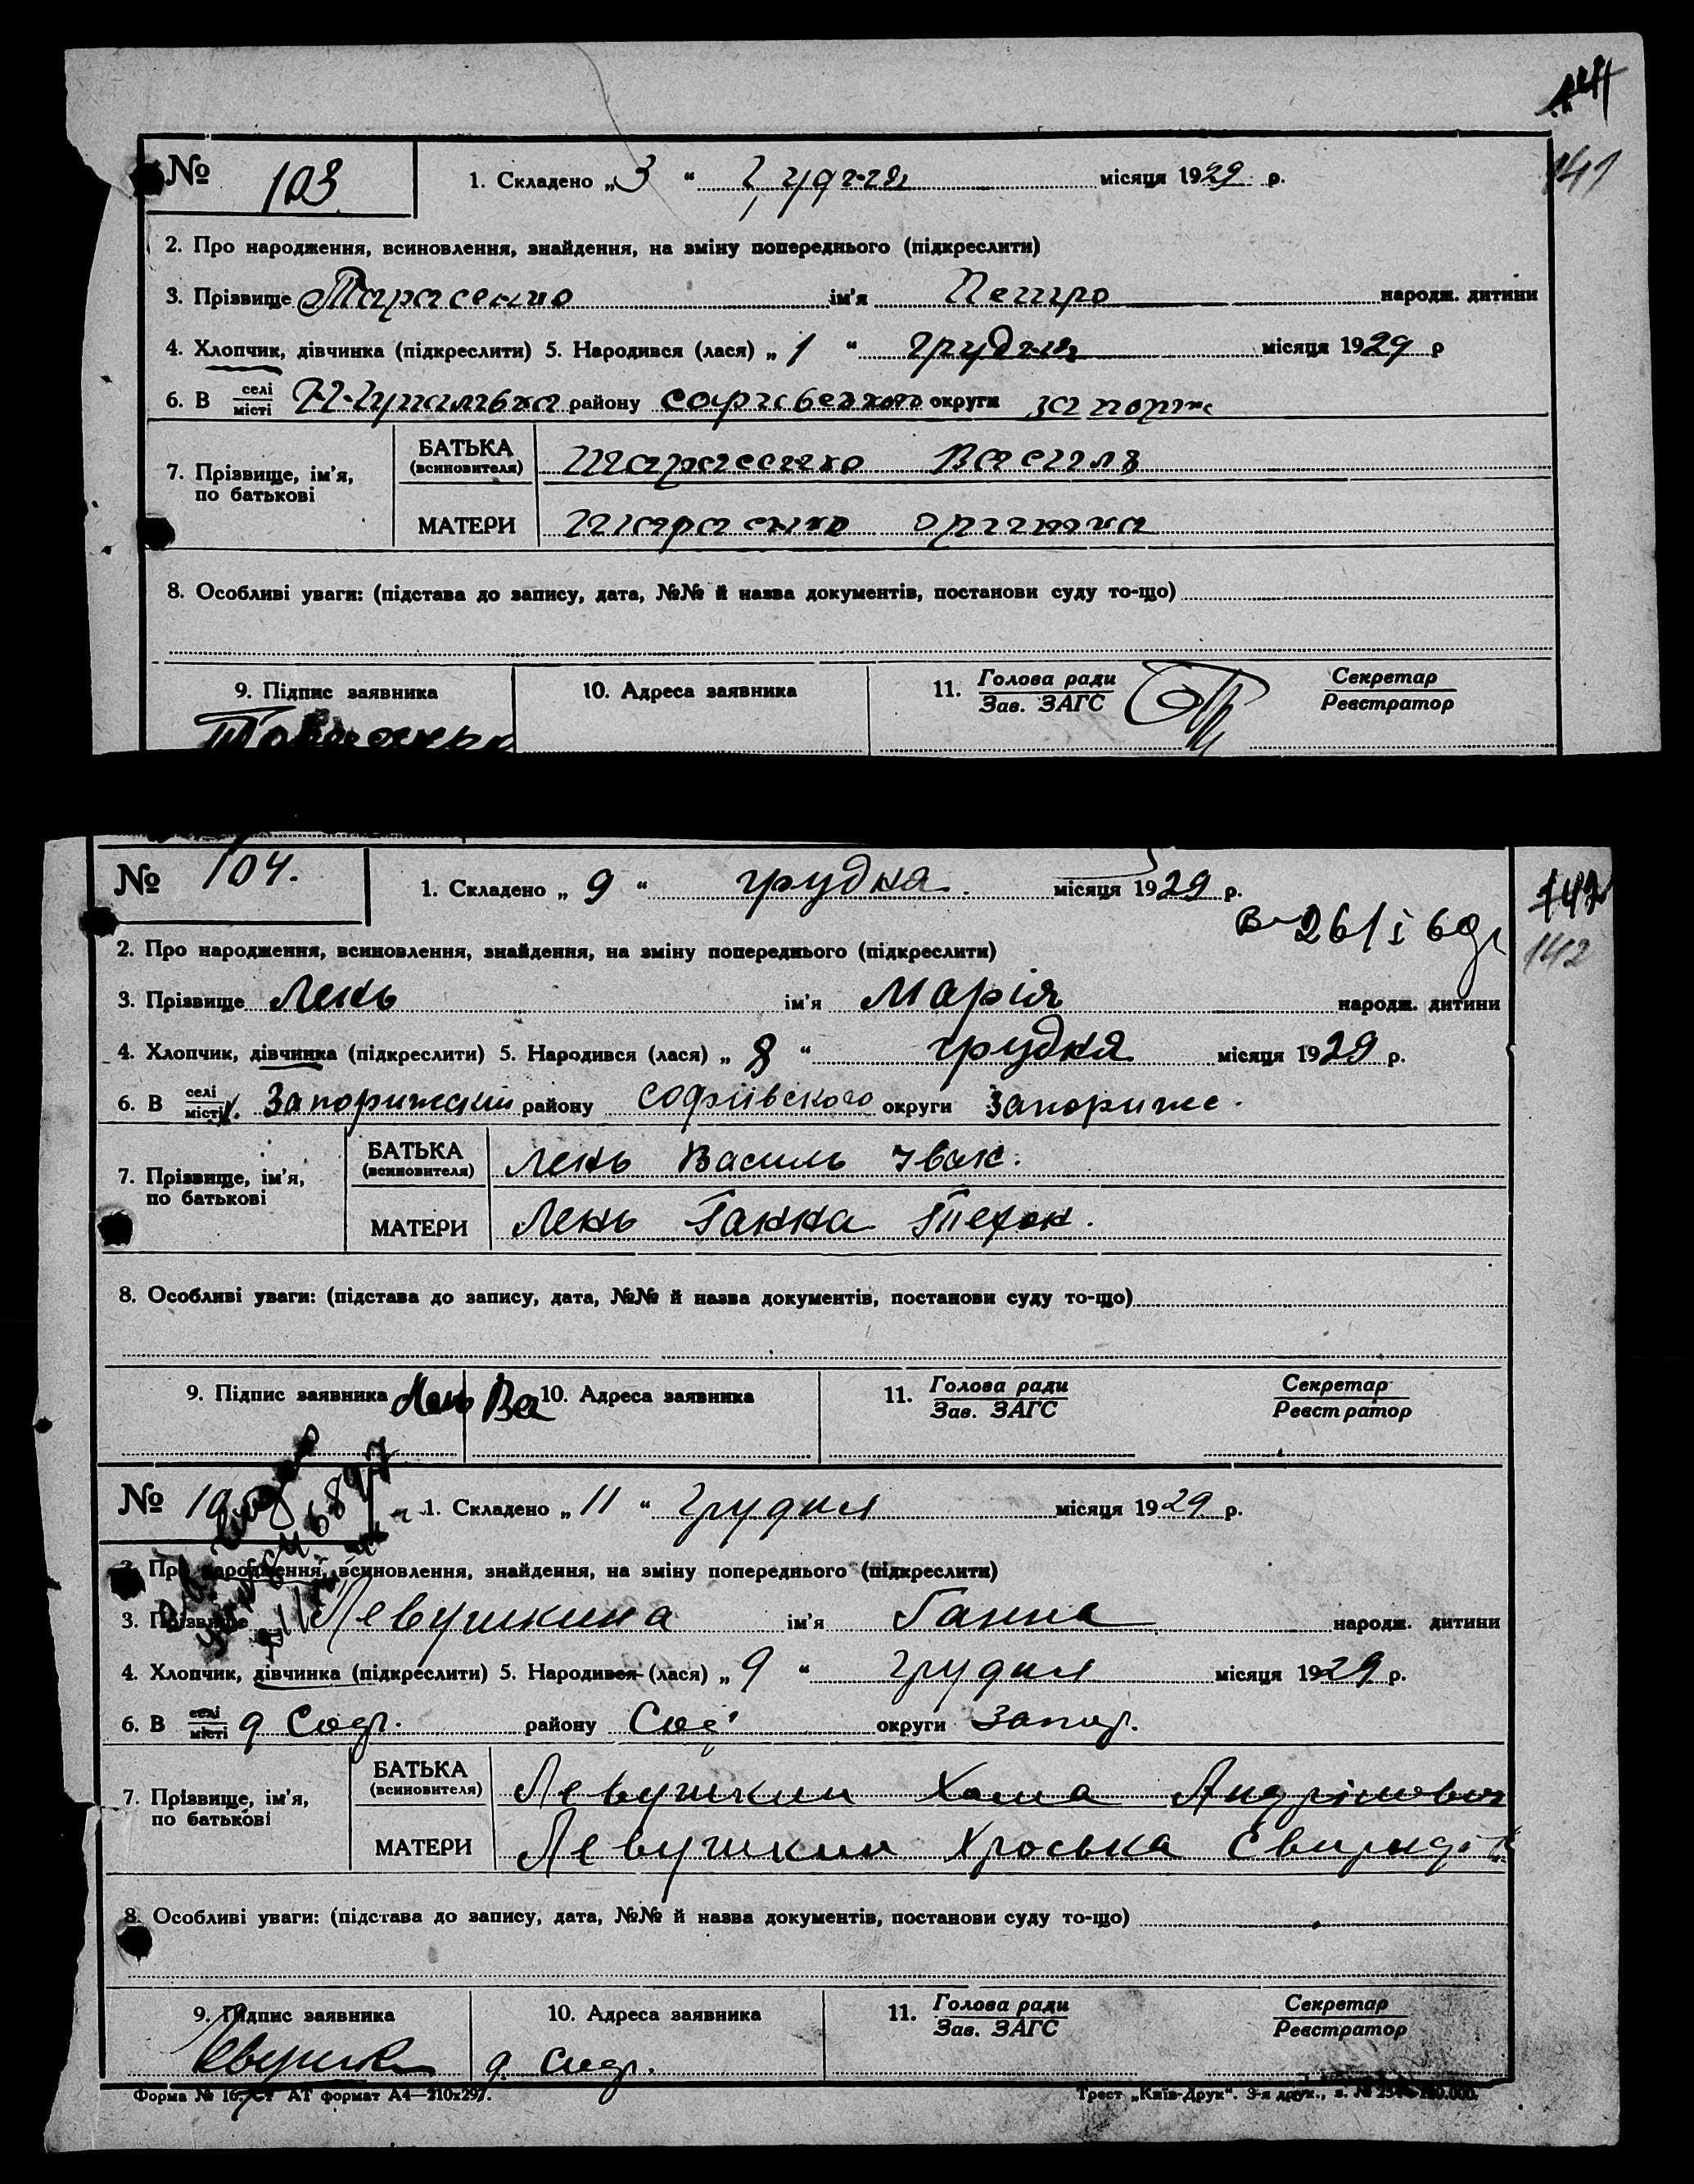 141
№ 103 1. Складено „3 “ грудня місяця 1929 р.
2. Про народження, всиновлення, знайдення, на зміну попереднього (підкреслити)
3. Прізвище Тарасенко ім'я Петро народж. дитини
4. Хлопчик, дівчинка (підкреслити) 5. Народився (лася) „ 1 “ грудня місяця 1929 р
6. В селі/місті району округи
7. Прізвище, ім'я, по батькові
БАТЬКА (всиновителя) Тарасенко Василь
МАТЕРИ
8. Особливі уваги: (підстава до запису, дата, №№ й назва документів, постанови суду то-що)
9. Підпис заявника 10. Адреса заявника 11. Голова ради/Зав. ЗАГС Секретар/Реєстратор
№ 104. 1. Складено „ 9 “ грудня місяця 1929 р.
142
2. Про народження, всиновлення, знайдення, на зміну попереднього (підкреслити)
142
3. Прізвище Лень ім'я Марія народж. дитини
4. Хлопчик, дівчинка (підкреслити) 5. Народився (лася) „ 8 “ грудня місяця 1929 р.
6. В селі/місті району Софіївского округи Запориже.
7. Прізвище, ім'я, по батькові
БАТЬКА (всиновителя) Лень Василь Іван.
МАТЕРИ Лень Ганна
8. Особливі уваги: (підстава до запису, дата, №№ й назва документів, постанови суду то-що)
9. Підпис заявника Лень Ва 10. Адреса заявника 11. Голова ради/Зав. ЗАГС Секретар/Реєстратор
№ 1. Складено „ 11 “ Грудня місяця 1929 р.
2. Про народження, всиновлення, знайдення, на зміну попереднього (підкреслити)
3. Прізвище Левушкина ім'я Ганна народж. дитини
4. Хлопчик, дівчинка (підкреслити) 5. Народився (лася) „ 9 “ Грудня місяця 1929 р.
6. В селі/місті району округи Запор.
7. Прізвище, ім'я, по батькові
БАТЬКА (всиновителя) Левушкин Хома
МАТЕРИ Левушкин Хроська
8. Особливі уваги: (підстава до запису, дата, №№ й назва документів, постанови суду то-що)
9. Підпис заявника 10. Адреса заявника 11. Голова ради/Зав. ЗАГС Секретар/Реєстратор
Форма № 16. АТ формат А4—210х297. Трест „Київ-Друк“. 3-я друк., з.